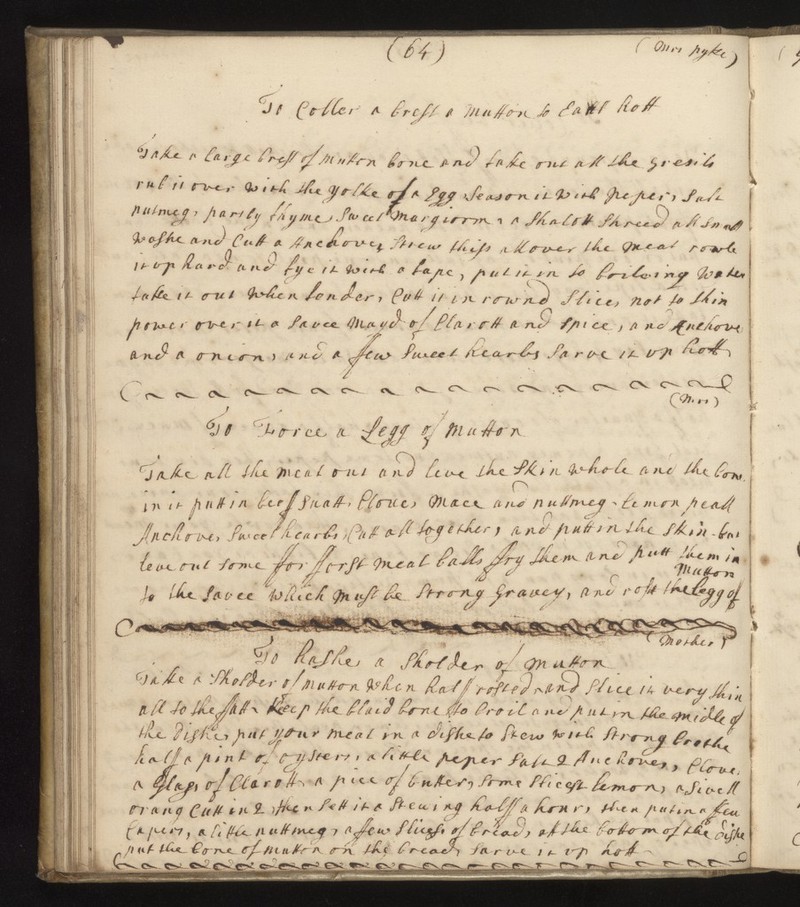 (64)
(Mrs Pyke)
To Coller a brest a Mutton to Eatt hott
Take a large brest of mutton bone and take out all the gresils
rub it over with the yolke of a Egg Season it with peper, Salt
nutmeg, parsly thyme, Sweet margiorm, a Shalott Shreed all Small
washe and Cutt a Anchovey Strew thiss all over the meat rowle
it up hard and tye it with a tape, put it in to boileing water
take it out when tender, Cutt it in rownd Slice, not to thin
power over it a Savce mayd of Clarott and Spice, and Anchove
and a onion, and a ffew Sweet hearbs Sarve it vp hott
(Mrs)
To Force a Legg of Mutton
Take all the meat out and leve the Skin whole and the bone
in it putt in beeff Suatt, Clove, Mace and nuttmeg, Lemon peall
Anchove, Sweet hearbs, Cutt all together, and putt in the Skin, but
leve out some ffor fforst meat balls ffry them and putt them in
to the Savce which must be Strong gravey, and rost the Legg of
Mutton
(Mother)
To hashe a Sholder of mutton
Take a Sholder of mutton when half rosted, and Slice it very thin
all to the ffatt, Keep the blaid bone to broil and put in the middle of
the dishe, put your meat in a dishe to Stew with Strong brothe
half a pint of oysters, a little peper Salt 2 Anchoves, Clove,
a Glass of Clarott, a piece of butter, some Slicest lemon, a Sivell
orang Cutt in 2, then Sett it a Stewing half a hour, then put in a ffew
Capers, a little nuttmeg, a ffew Slices of bread, att the bottom of the dishe
put the bone of mutton on the bread, Sarve it vp hott